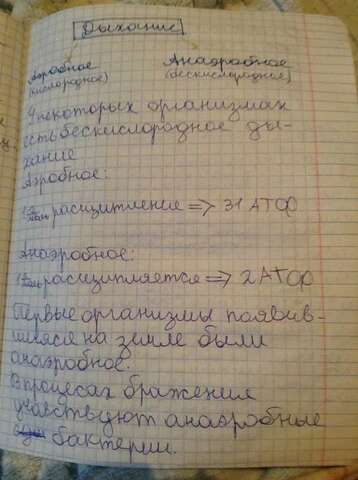 Дыхание
Аэробное Анаэробное
(кислородное) (бескислородное)
У некоторых организмах
есть бескислородное ды-
хание
Аэробное:
расщипление => 31 АТФ
Анаэробное:
расщипляется => 2 АТФ
Первые организмы появив-
шиеся на земле были
анаэробное.
В процесах бражения
участвуют анаэробные
бактерии.